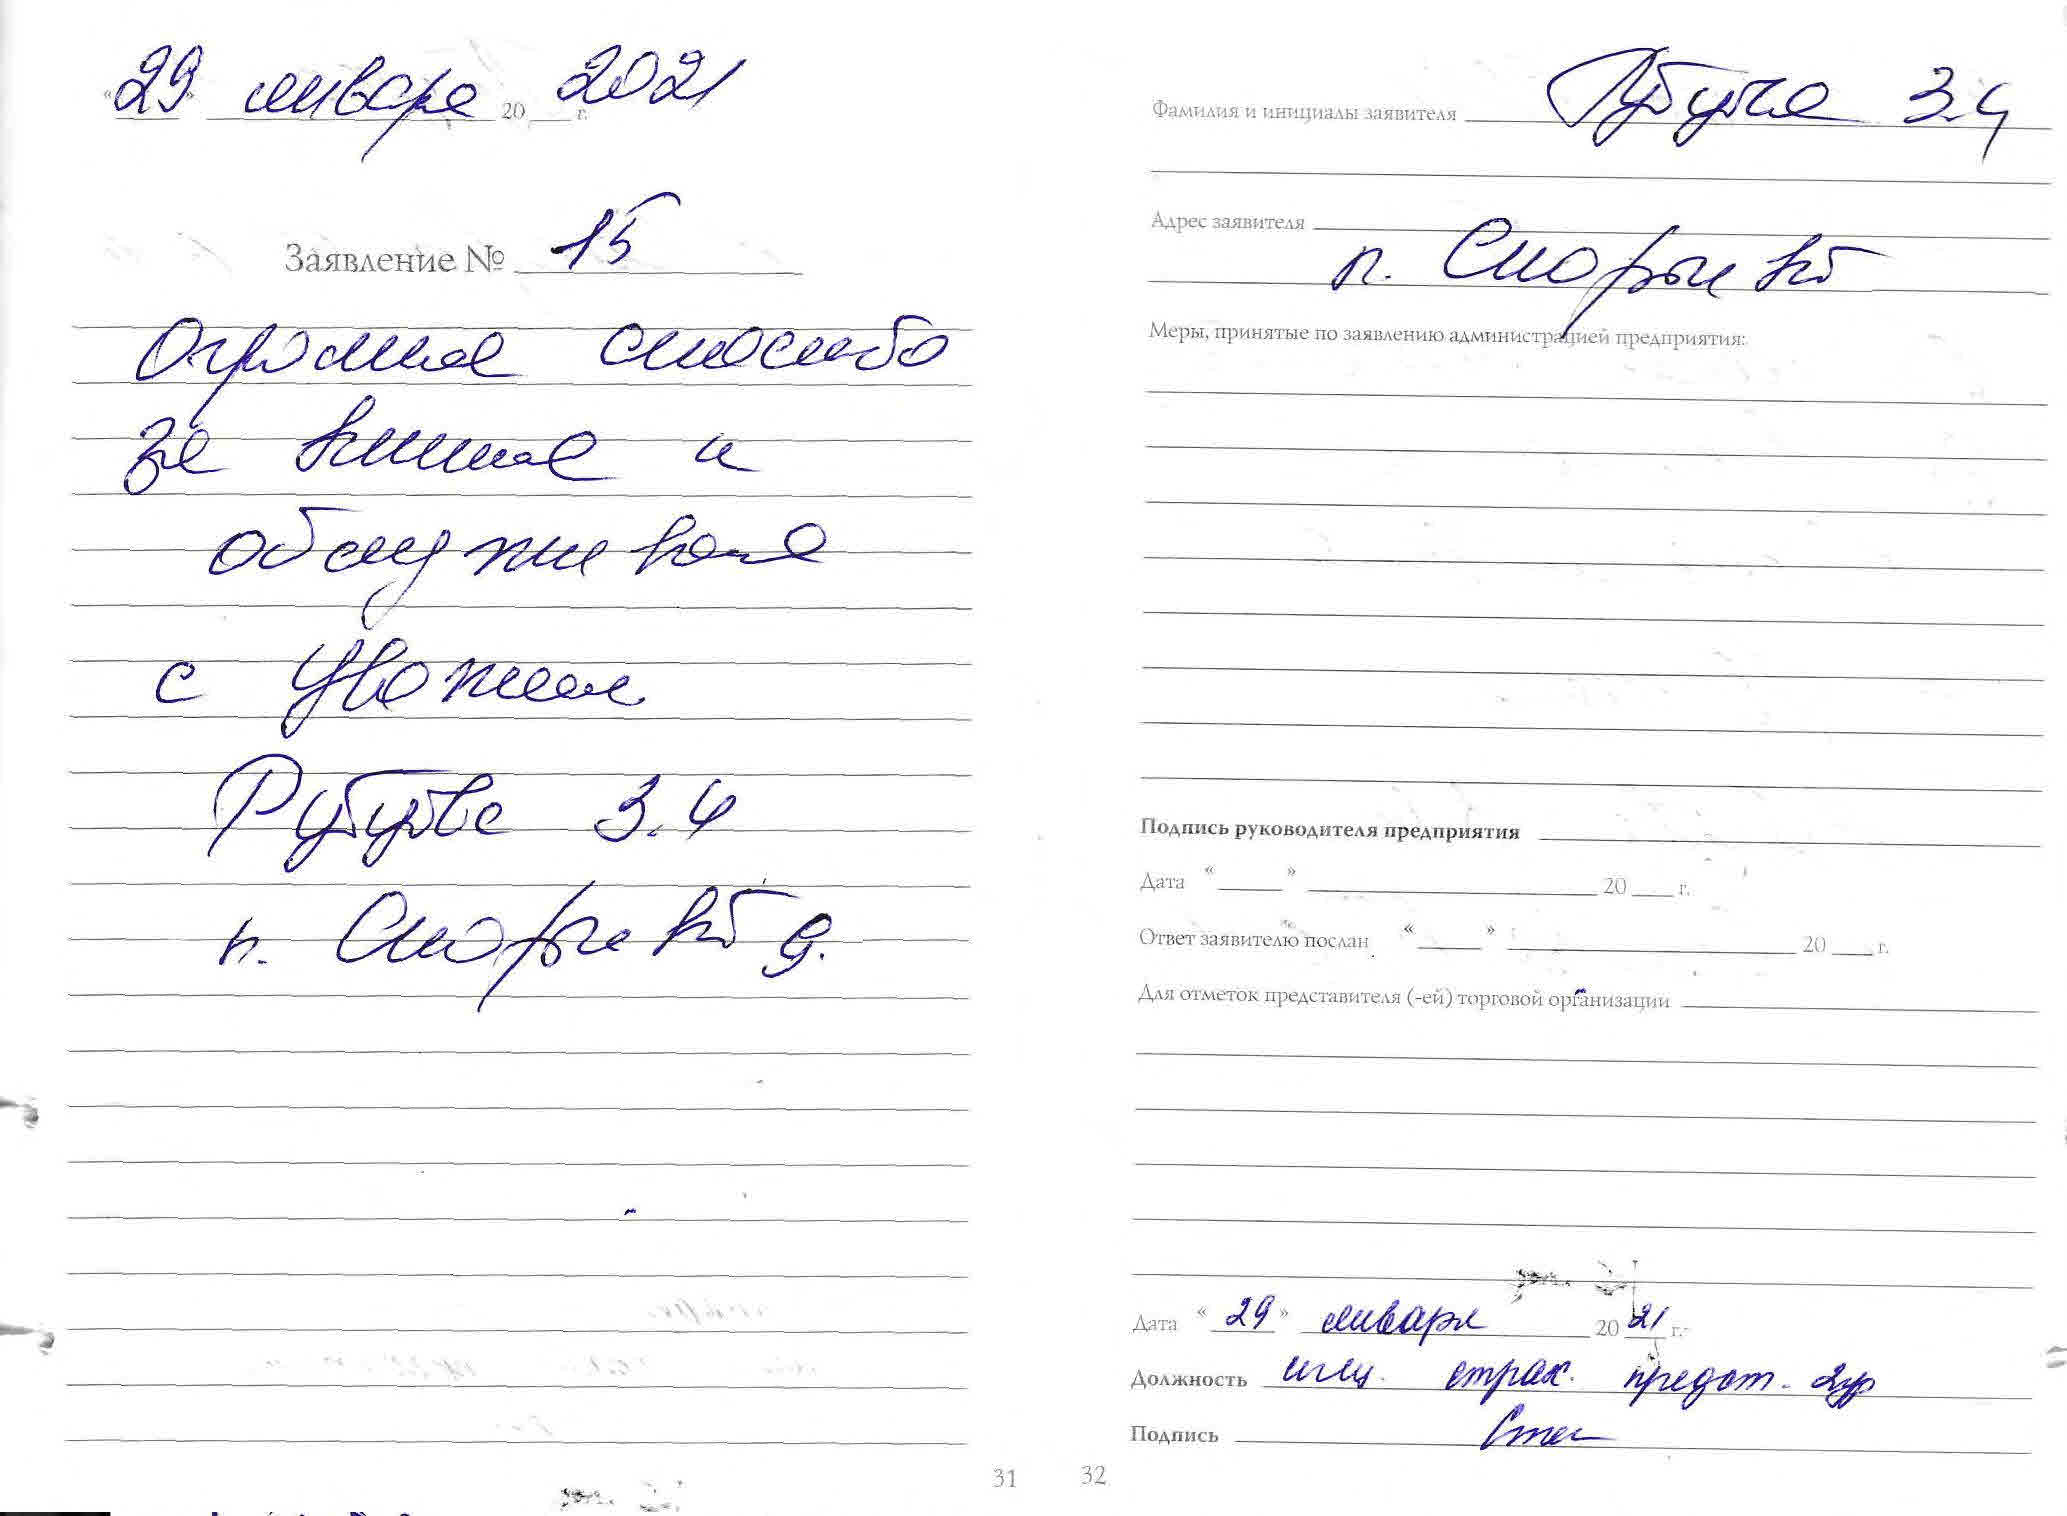 «29» января 20 ___ г. 2021
Заявление № 15
Огромное спосибо
за внима и
обслуживоние
с уважен
3.Ч
п.
31
Фамилия и инициалы заявителя 3.Ч
Адрес заявителя
п.
Меры, принятые по заявлению администрацией предприятия:
Подпись руководителя предприятия
Дата «___» ___ 20 ___ г.
Ответ заявителю послан «___» ___ 20 ___ г.
Для отметок представителя (-ей) торговой организации
Дата «29» января 20 21 г.
Должность спец. страх.
Подпись
32